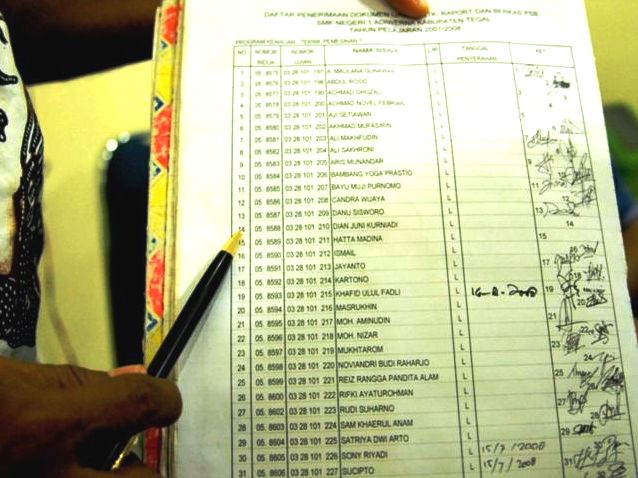 DAFTAR PENERIMAAN DOKUMEN RAPORT DAN BERKAS PSB
SMK NEGERI 1 ADIWERNA KABUPATEN TEGAL
TAHUN PELAJARAN 2007/2008
PROGRAM KEAHLIAN : TEKNIK PEMESINAN 1
NO NOMOR INDUK NOMOR UJIAN NAMA SISWA L/P TANGGAL PENYERAHAN KET
1 05. 8575 03 28 101 197 A. MAULANA GUNAWAN L
2 05. 8576 03 28 101 198 ABDUL ROSID L
3 05. 8577 03 28 101 199 ACHMAD GHOZALI L 3
4 05. 8578 03 28 101 200 ACHMAD NOVEL FEBRIAN L
5 05. 8579 03 28 101 201 AJI SETIAWAN L 5
6 05. 8580 03 28 101 202 AKHMAD MUFASIRIN L 6
7 05. 8581 03 28 101 203 ALI MAKHFUDIN L 7
8 05. 8582 03 28 101 204 ALI SAKHRONI L
9 05. 8583 03 28 101 205 ARIS MUNANDAR L 9
10 05. 8584 03 28 101 206 BAMBANG YOGA PRASTIO L
11 05. 8585 03 28 101 207 BAYU MUJI PURNOMO L 11
12 05. 8586 03 28 101 208 CANDRA WIJAYA L 12
13 05. 8587 03 28 101 209 DANU SISWORO L 13
14 05. 8588 03 28 101 210 DIAN JUNI KURNIADI L 14
15 05. 8589 03 28 101 211 HATTA MADINA L 15
16 05. 8590 03 28 101 212 ISMAIL L 16
17 05. 8591 03 28 101 213 JAYANTO L 17
18 05. 8592 03 28 101 214 KARTONO L 18
19 05. 8593 03 28 101 215 KHAFID ULUL FADLI L 2008 19
20 05. 8594 03 28 101 216 MASRUKHIN L 20
21 05. 8595 03 28 101 217 MOH. AMINUDIN L 21
22 05. 8596 03 28 101 218 MOH. NIZAR L 22
23 05. 8597 03 28 101 219 MUKHTAROM L 23
24 05. 8598 03 28 101 220 NOVIANDRI BUDI RAHARJO L 24
25 05. 8599 03 28 101 221 REIZ RANGGA PANDITA ALAM L 25
26 05. 8600 03 28 101 222 RIFKI AYATUROHMAN L 26
27 05. 8602 03 28 101 223 RUDI SUHARNO L 27
28 05. 8603 03 28 101 224 SAM KHAERUL ANAM L 28
29 05. 8604 03 28 101 225 SATRIYA DWI ARTO L 29
30 05. 8605 03 28 101 226 SONY RIYADI L 15/7/2008 30
31 05. 8606 03 28 101 227 SUCIPTO L 15/7/2008 31